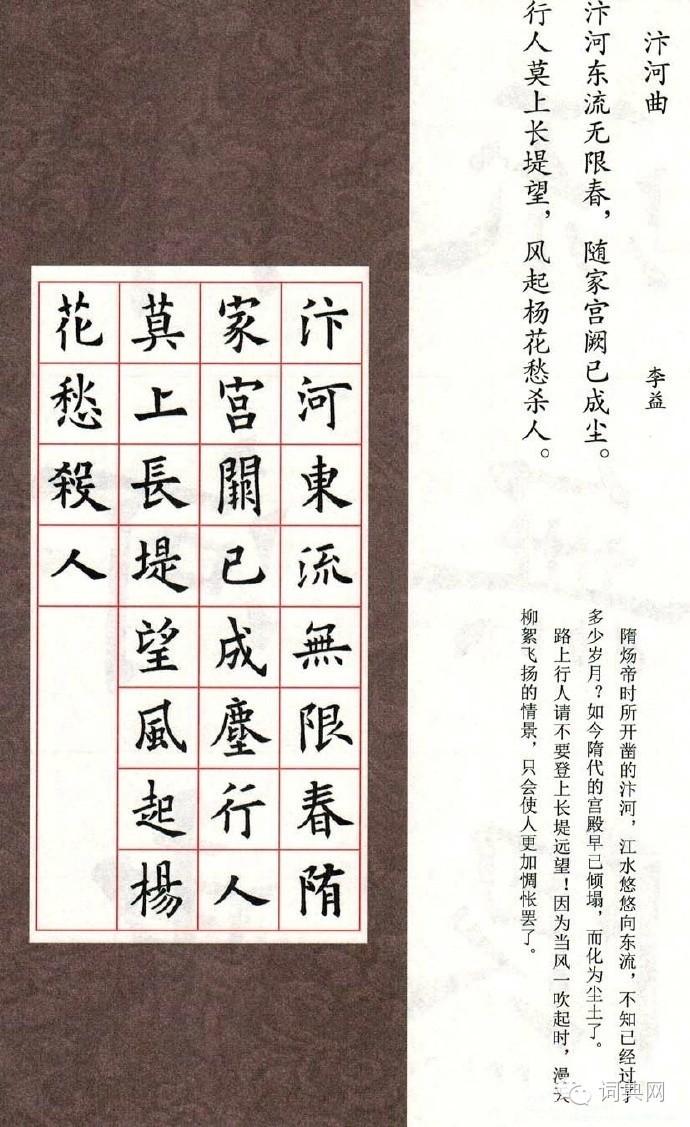 汴河曲
李益
汴河东流无限春，随家宫阙已成尘。
行人莫上长堤望，风起杨花愁杀人。
隋炀帝时所开凿的汴河，江水悠悠向东流，不知已经过了
多少岁月？如今隋代的宫殿早已倾塌，而化为尘土了。
路上行人请不要登上长堤远望！因为当风一吹起时，漫天
柳絮飞扬的情景，只会使人更加惆怅罢了。
汴河東流無限春隋
家宫闕已成塵行人
莫上長堤望風起楊
花愁殺人
词典网